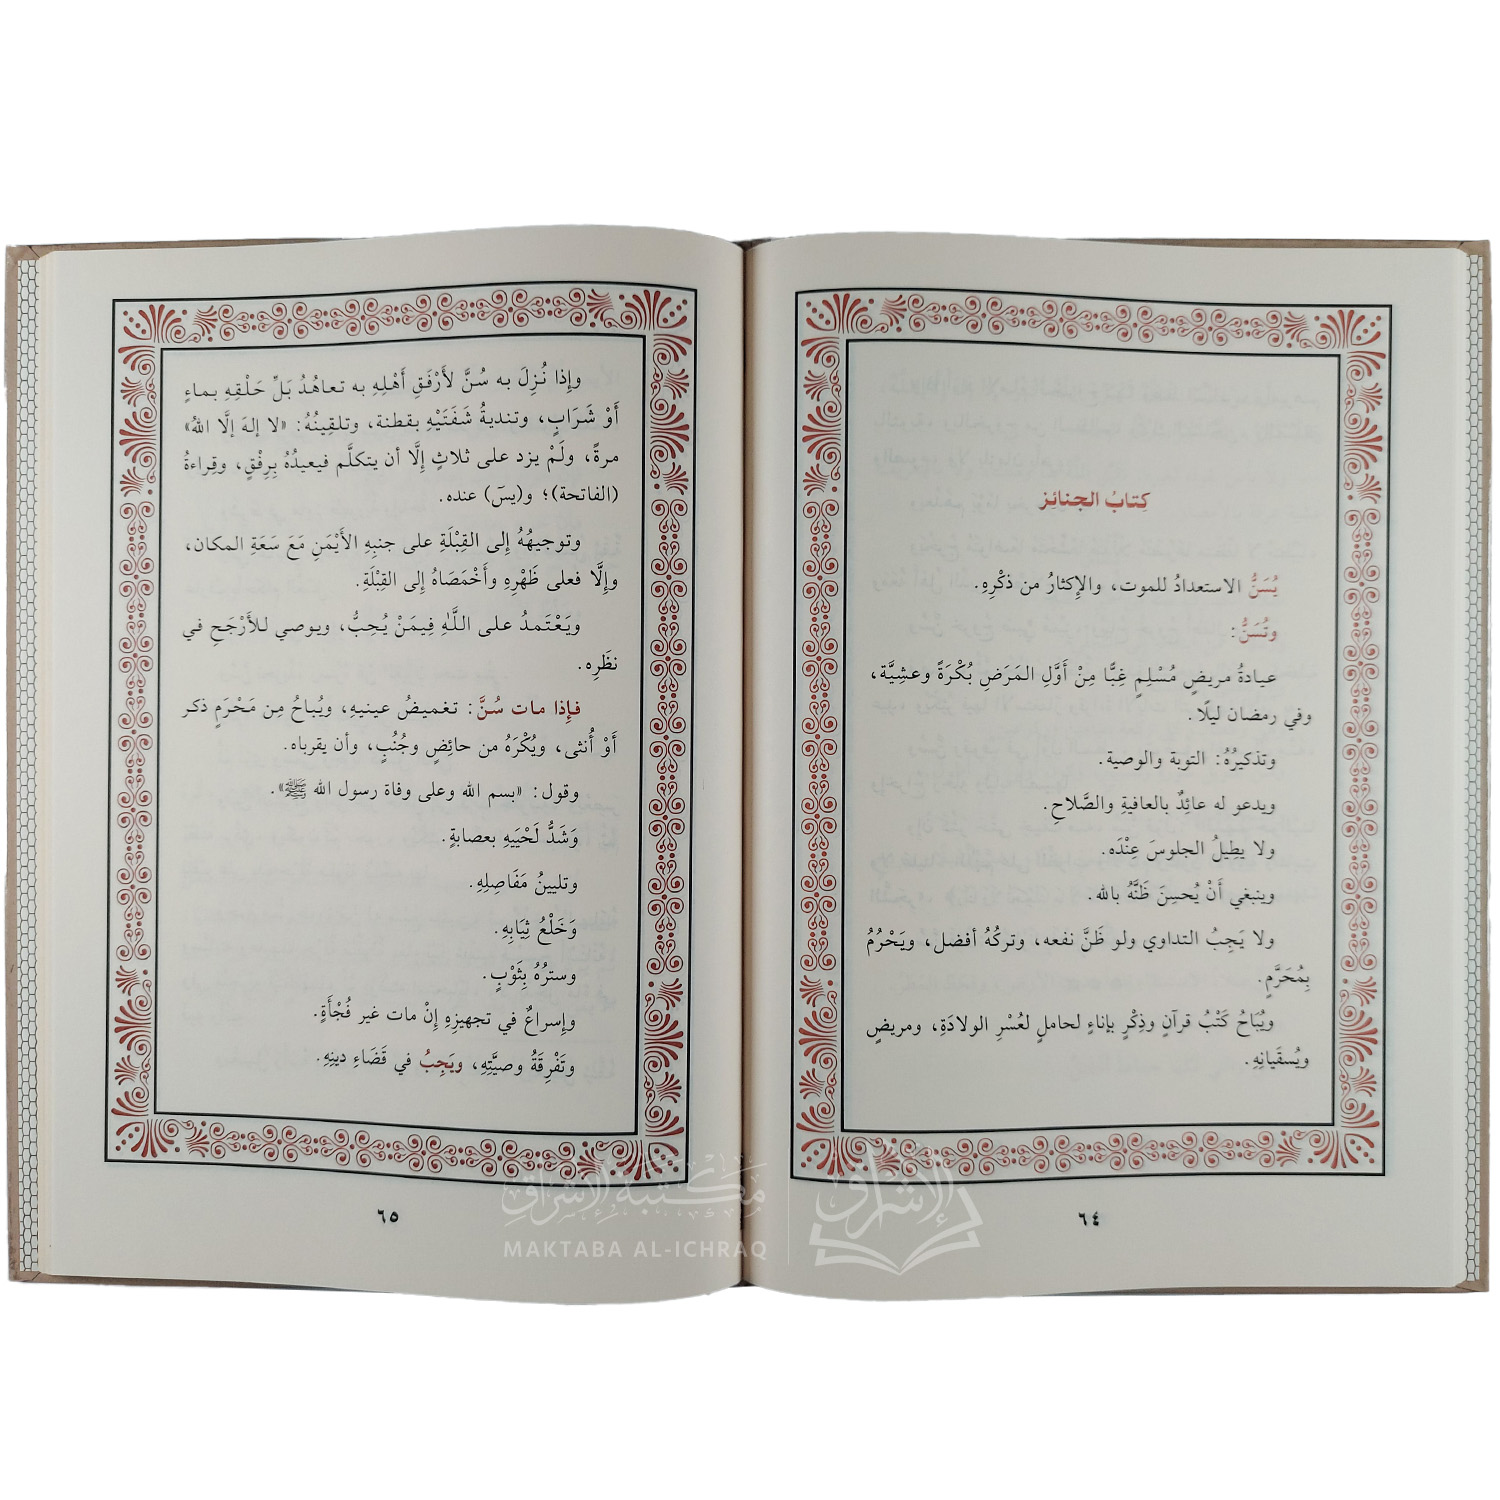 كِتابُ الجنائز
يُسَنُّ الاستعدادُ للموت، والإكثارُ من ذكْرِهِ.
وتُسَنُّ:
عيادةُ مريضٍ مُسْلِمٍ غِبًّا مِنْ أَوَّلِ المَرَضِ بُكْرَةً وعشِيَّة،
وفي رمضان ليلًا.
وتذكيرُهُ: التوبة والوصية.
ويدعو له عائِدٌ بالعافيةِ والصَّلاحِ.
ولا يطِيلُ الجلوسَ عِنْدَه.
وينبغي أَنْ يُحسِنَ ظَنَّهُ بالله.
ولا يَجِبُ التداوي ولو ظَنَّ نفعه، وتركُهُ أفضل، ويَحْرُمُ
بِمُحَرَّمٍ.
ويُبَاحُ كَتْبُ قرآنٍ وذِكْرٍ بإناءٍ لحاملٍ لعُسْرِ الولادَةِ، ومريضٍ
ويُسقَيانِهِ.
٦٤
وإذا نُزِلَ به سُنَّ لأَرْفَقِ أَهْلِهِ به تعاهُدُ بَلِّ حَلْقِهِ بماءٍ
أَوْ شَرَابٍ، وتنديةُ شَفَتَيْهِ بقطنة، وتلقِينُهُ: «لا إلهَ إلَّا اللهُ»
مرةً، ولَمْ يزد على ثلاثٍ إلَّا أن يتكلَّم فيعيدُهُ بِرِفْقٍ، وقِراءةُ
(الفاتحة)؛ و(يسَ) عنده.
وتوجيهُهُ إلى القِبْلَةِ على جنبِهِ الأَيْمَنِ مَعَ سَعَةِ المكان،
وإلَّا فعلى ظَهْرِهِ وأَخْمَصَاهُ إلى القِبْلَةِ.
ويَعْتَمدُ على اللَّهِ فِيمَنْ يُحِبُّ، ويوصي للأَرْجَحِ في
نظَرِه.
فإذا مات سُنَّ: تغميضُ عينيهِ، ويُباحُ مِن مَحْرَمٍ ذكر
أَوْ أُنثى، ويُكْرَهُ من حائِضٍ وجُنُبٍ، وأن يقرباه.
وقول: «بسم الله وعلى وفاة رسول الله ﷺ».
وَشَدُّ لَحْيَيهِ بعصابةٍ.
وتليينُ مَفَاصِلِهِ.
وَخَلْعُ ثِيَابِهِ.
وسترُهُ بِثَوْبٍ.
وإسراعٌ في تجهيزِهِ إنْ مات غير فُجْأَةٍ.
وتَفْرِقَةُ وصيَّتِهِ، ويَجِبُ في قَضَاءِ دينِهِ.
٦٥
مكتبة الإشراق
MAKTABA AL-ICHRAQ
الإشراق